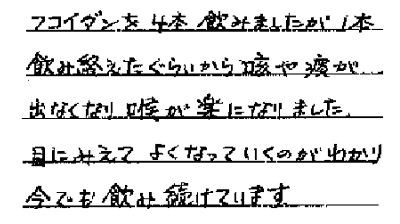 フコイダンを4本飲みましたが1本
飲み終えたぐらいから咳や痰が
出なくなり喉が楽になりました。
目にみえてよくなっていくのがわかり
今でも飲み続けています